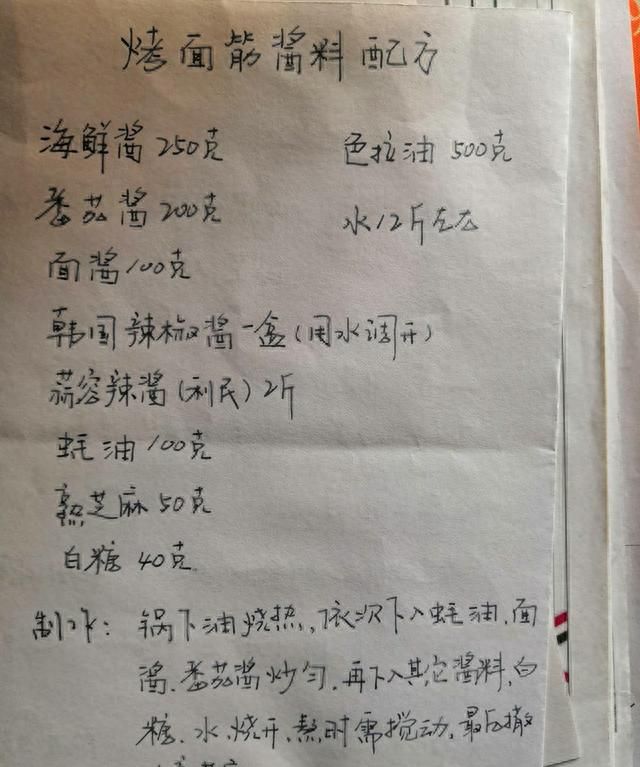 烤面筋酱料配方
海鲜酱250克 色拉油500克
番茄酱200克 水12斤左右
面酱100克
韩国辣椒酱一盒(用水调开)
蒜容辣酱(利民)2斤
蚝油100克
熟芝麻50克
白糖40克
制作:锅下油烧热,依次下入蚝油、面
酱、番茄酱炒匀,再下入其它酱料、白
糖、水、烧开、熬时需搅动,最后撒